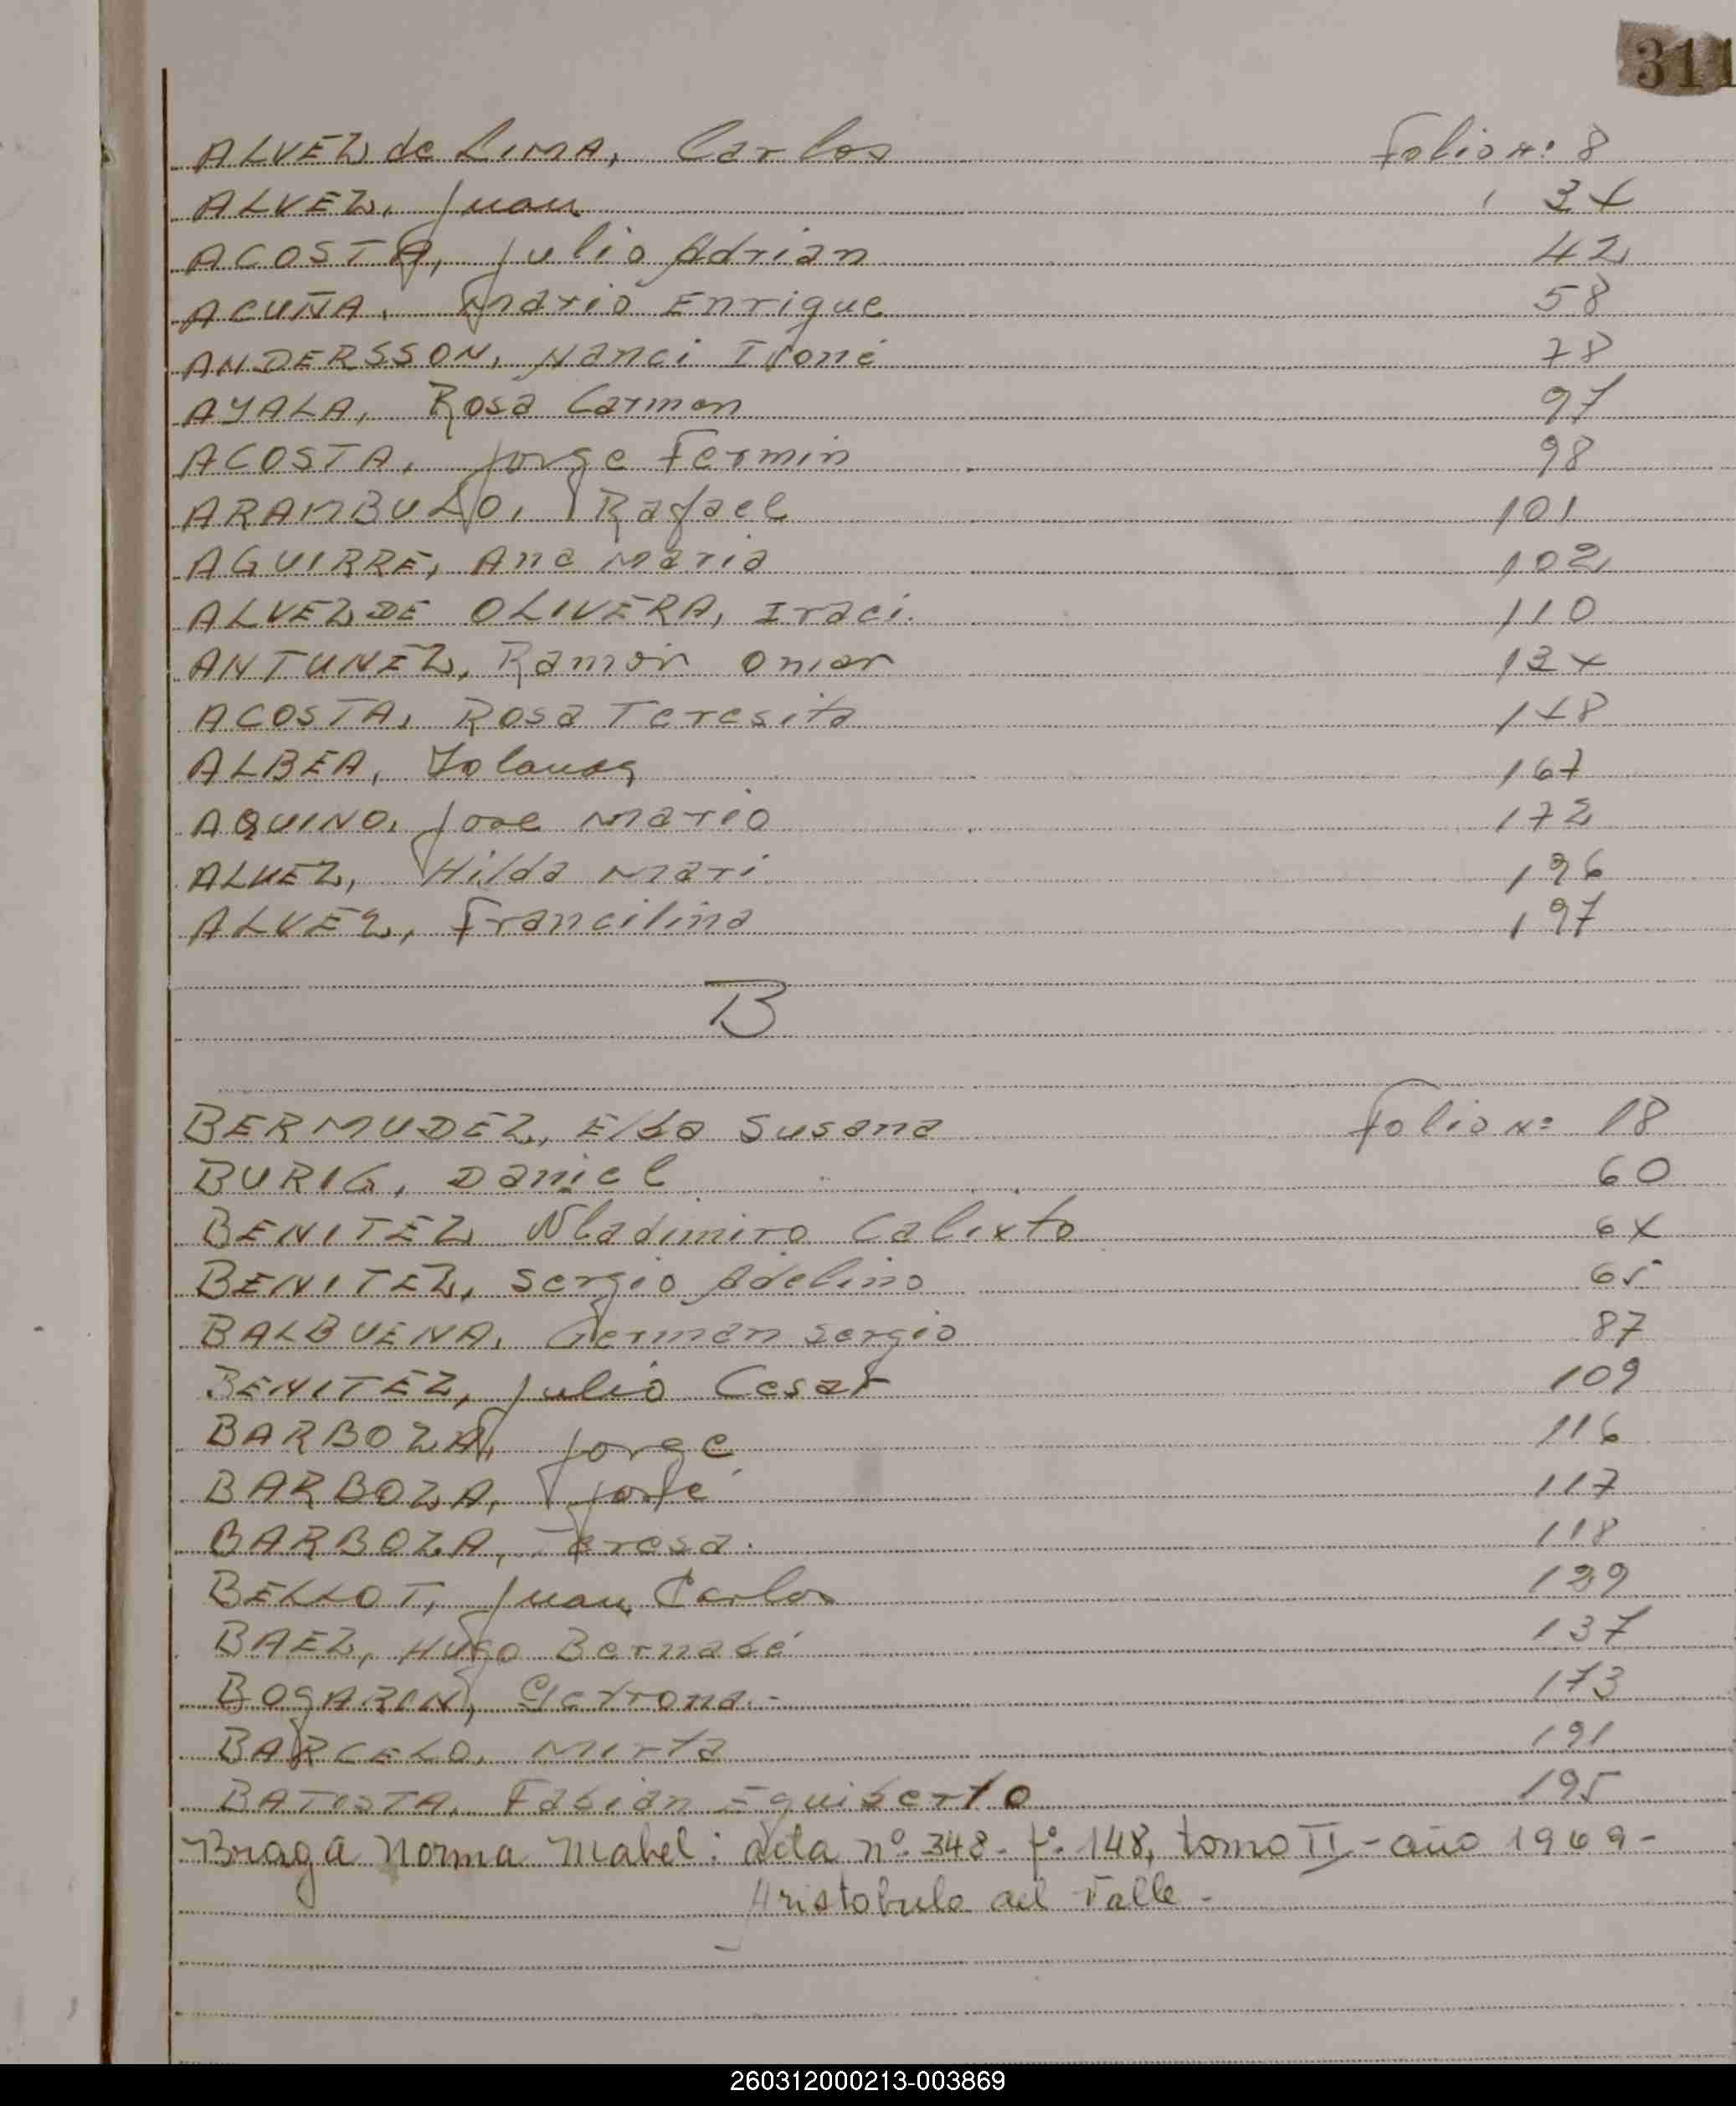 311
ALVEZ de LIMA, Carlos Folio Nº 8
ALVEZ, Juan 34
ACOSTA, Julio Adrian 42
ACUÑA, Mario Enrique 58
ANDERSSON, Nanci Ivoné 78
AYALA, Rosa Carmen 97
ACOSTA, Jorge Fermin 98
ARAMBULO, Rafael 101
AGUIRRE, Ana Maria 102
ALVEZ DE OLIVERA, Iraci. 110
ANTUNEZ, Ramón Omar 134
ACOSTA, Rosa Teresita 148
ALBEA, Yolanda 167
AQUINO, Jose Mario 172
ALVEZ, Hilda Mari 196
ALVEZ, Francilina 197
B
BERMUDEZ, Elba Susana Folio Nº 18
BURIG, Daniel 60
BENITEZ Wladimiro Calixto 64
BENITEZ, Sergio Adelino 65
BALBUENA, Germán Sergio 87
BENITEZ, Julio Cesar 109
BARBOZA, Jorge 116
BARBOZA, José 117
BARBOZA, Teresa. 118
BELLOT, Juan Carlos
BAEZ, Hugo Bernabé 137
BOGARIN, 173
BARCELO, Mirta 191
BATISTA, Fabián Equiberto 195
Braga Norma Mabel: acta nº 348 - fº 148, tomo II - año 1969 -
Aristobulo del Valle -
260312000213-003869